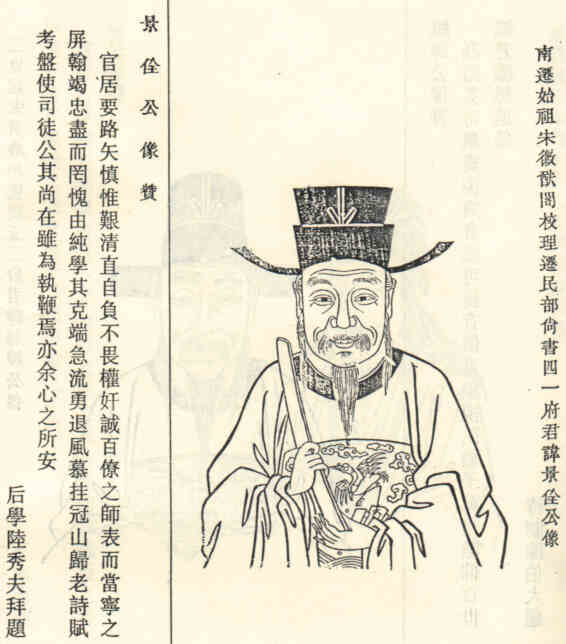 南遷始祖宋徽猷閣校理遷民部尙書四一府君諱景佺公像
景佺公像贊
官居要路矢愼惟艱清直自負不畏權奸誠百僚之師表而當寧之
屏翰竭忠盡而罔愧由純學其克端急流勇退風慕挂冠山歸老詩賦
考盤使司徒公其尚在雖為執鞭焉亦余心之所安
后學陸秀夫拜題